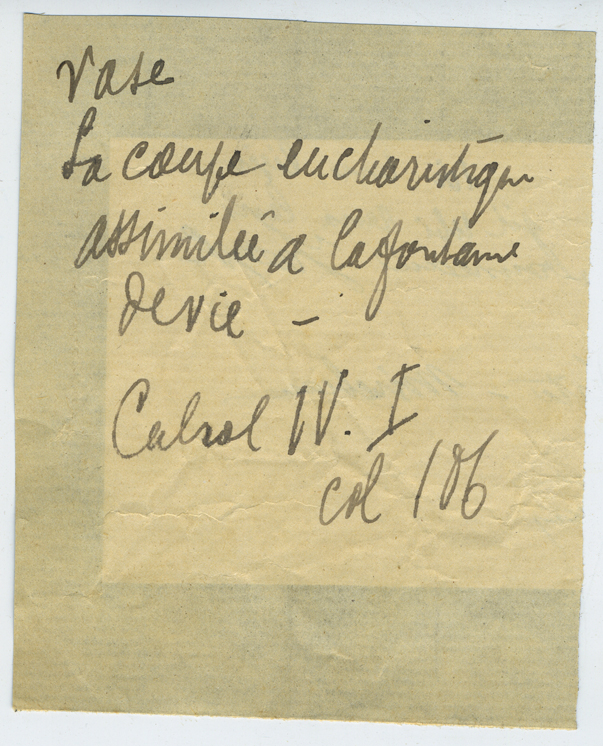 Vase
La coupe eucharistique
assimilée a la fontaine
de vie –
Cabrol IV. I
col 106